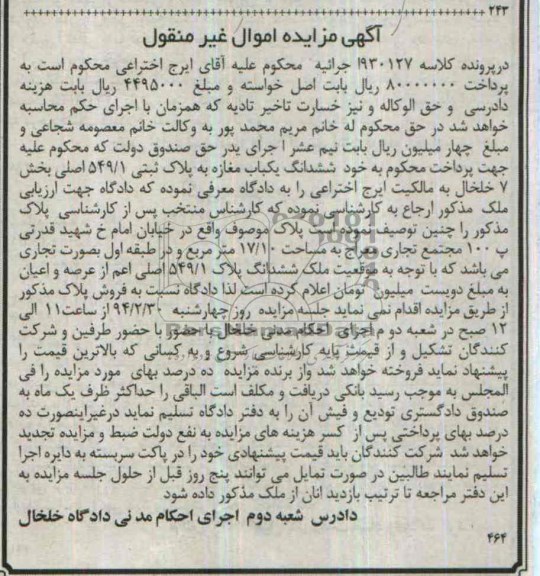 ۲۴۳
آگهی مزایده اموال غیر منقول
درپرونده کلاسه ۹۳۰۱۲۷ا جرائیه محکوم علیه آقای ایرج اختراعی محکوم است به
پرداخت ۸۰۰۰۰۰۰۰ ریال بابت اصل خواسته و مبلغ ۴۴۹۵۰۰۰ ریال بابت هزینه
دادرسی و حق الوکاله و نیز خسارت تاخیر تادیه که همزمان با اجرای حکم محاسبه
خواهد شد در حق محکوم له خانم مریم محمد پور به وکالت خانم معصومه شجاعی و
مبلغ چهار میلیون ریال بابت نیم عشر ا جرای یدر حق صندوق دولت که محکوم علیه
جهت پرداخت محکوم به خود ششدانگ یکباب مغازه به پلاک ثبتی ۵۴۹/۱ اصلی بخش
۷ خلخال به مالکیت ایرج اختراعی را به دادگاه معرفی نموده که دادگاه جهت ارزیابی
ملک مذکور ارجاع به کارشناسی نموده که کارشناس منتخب پس از کارشناسی پلاک
مذکور را چنین توصیف نموده است پلاک موصوف واقع در خیابان امام خ شهید قدرتی
پ ۱۰۰ مجتمع تجاری معراج به مساحت ۱۷/۱۰ متر مربع و در طبقه اول بصورت تجاری
می باشد که با توجه به موقعیت ملک ششدانگ پلاک ۵۴۹/۱ اصلی اعم از عرصه و اعیان
به مبلغ دویست میلیون تومان اعلام کرده است لذا دادگاه نسبت به فروش پلاک مذکور
از طریق مزایده اقدام نمی نماید جلسه مزایده روز چهارشنبه ۹۴/۲/۳۰ از ساعت۱۱ الی
۱۲ صبح در شعبه دو م اجرای احکام مدنی خلخال با حضور با حضور طرفین و شرکت
کنندگان تشکیل و از قیمت پایه کارشناسی شروع و به کسانی که بالاترین قیمت را
پیشنهاد نماید فروخته خواهد شد واز برنده مزایده ده درصد بهای مورد مزایده را فی
المجلس به موجب رسید بانکی دریافت و مکلف است الباقی را حداکثر ظرف یک ماه به
صندوق دادگستری تودیع و فیش آن را به دفتر دادگاه تسلیم نماید درغیراینصورت ده
درصد بهای پرداختی پس از کسر هزینه های مزایده به نفع دولت ضبط و مزایده تجدید
خواهد شد شرکت کنندگان باید قیمت پیشنهادی خود را در پاکت سربسته به دایره اجرا
تسلیم نمایند طالبین در صورت تمایل می توانند پنج روز قبل از حلول جلسه مزایده به
این دفتر مراجعه تا ترتیب بازدید انان از ملک مذکور داده شود
دادرس شعبه دوم اجرای احکام مد نی دادگاه خلخال
۴۶۴